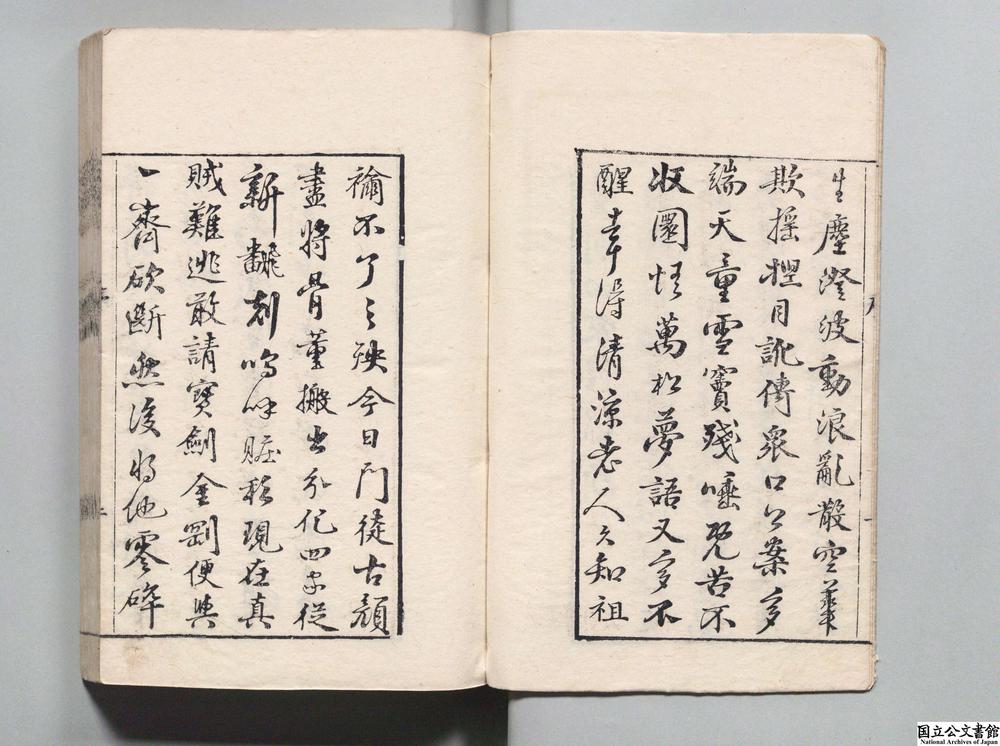 生塵澄波動浪亂散空華
欺搖捏目訛傳眾口公案多
端天童雪竇殘唾既苦不
收圜悟萬松夢語又多不
醒幸得清涼老人久知祖
禰不了之殃今日門徒古顏
盡將骨董搬出分作四家從
新翻刻嗚呼賍私現在真
賊難逃敢請寶劍金剛便與
一齊砍斷然後將他零碎
国立公文書館
National Archives of Japan